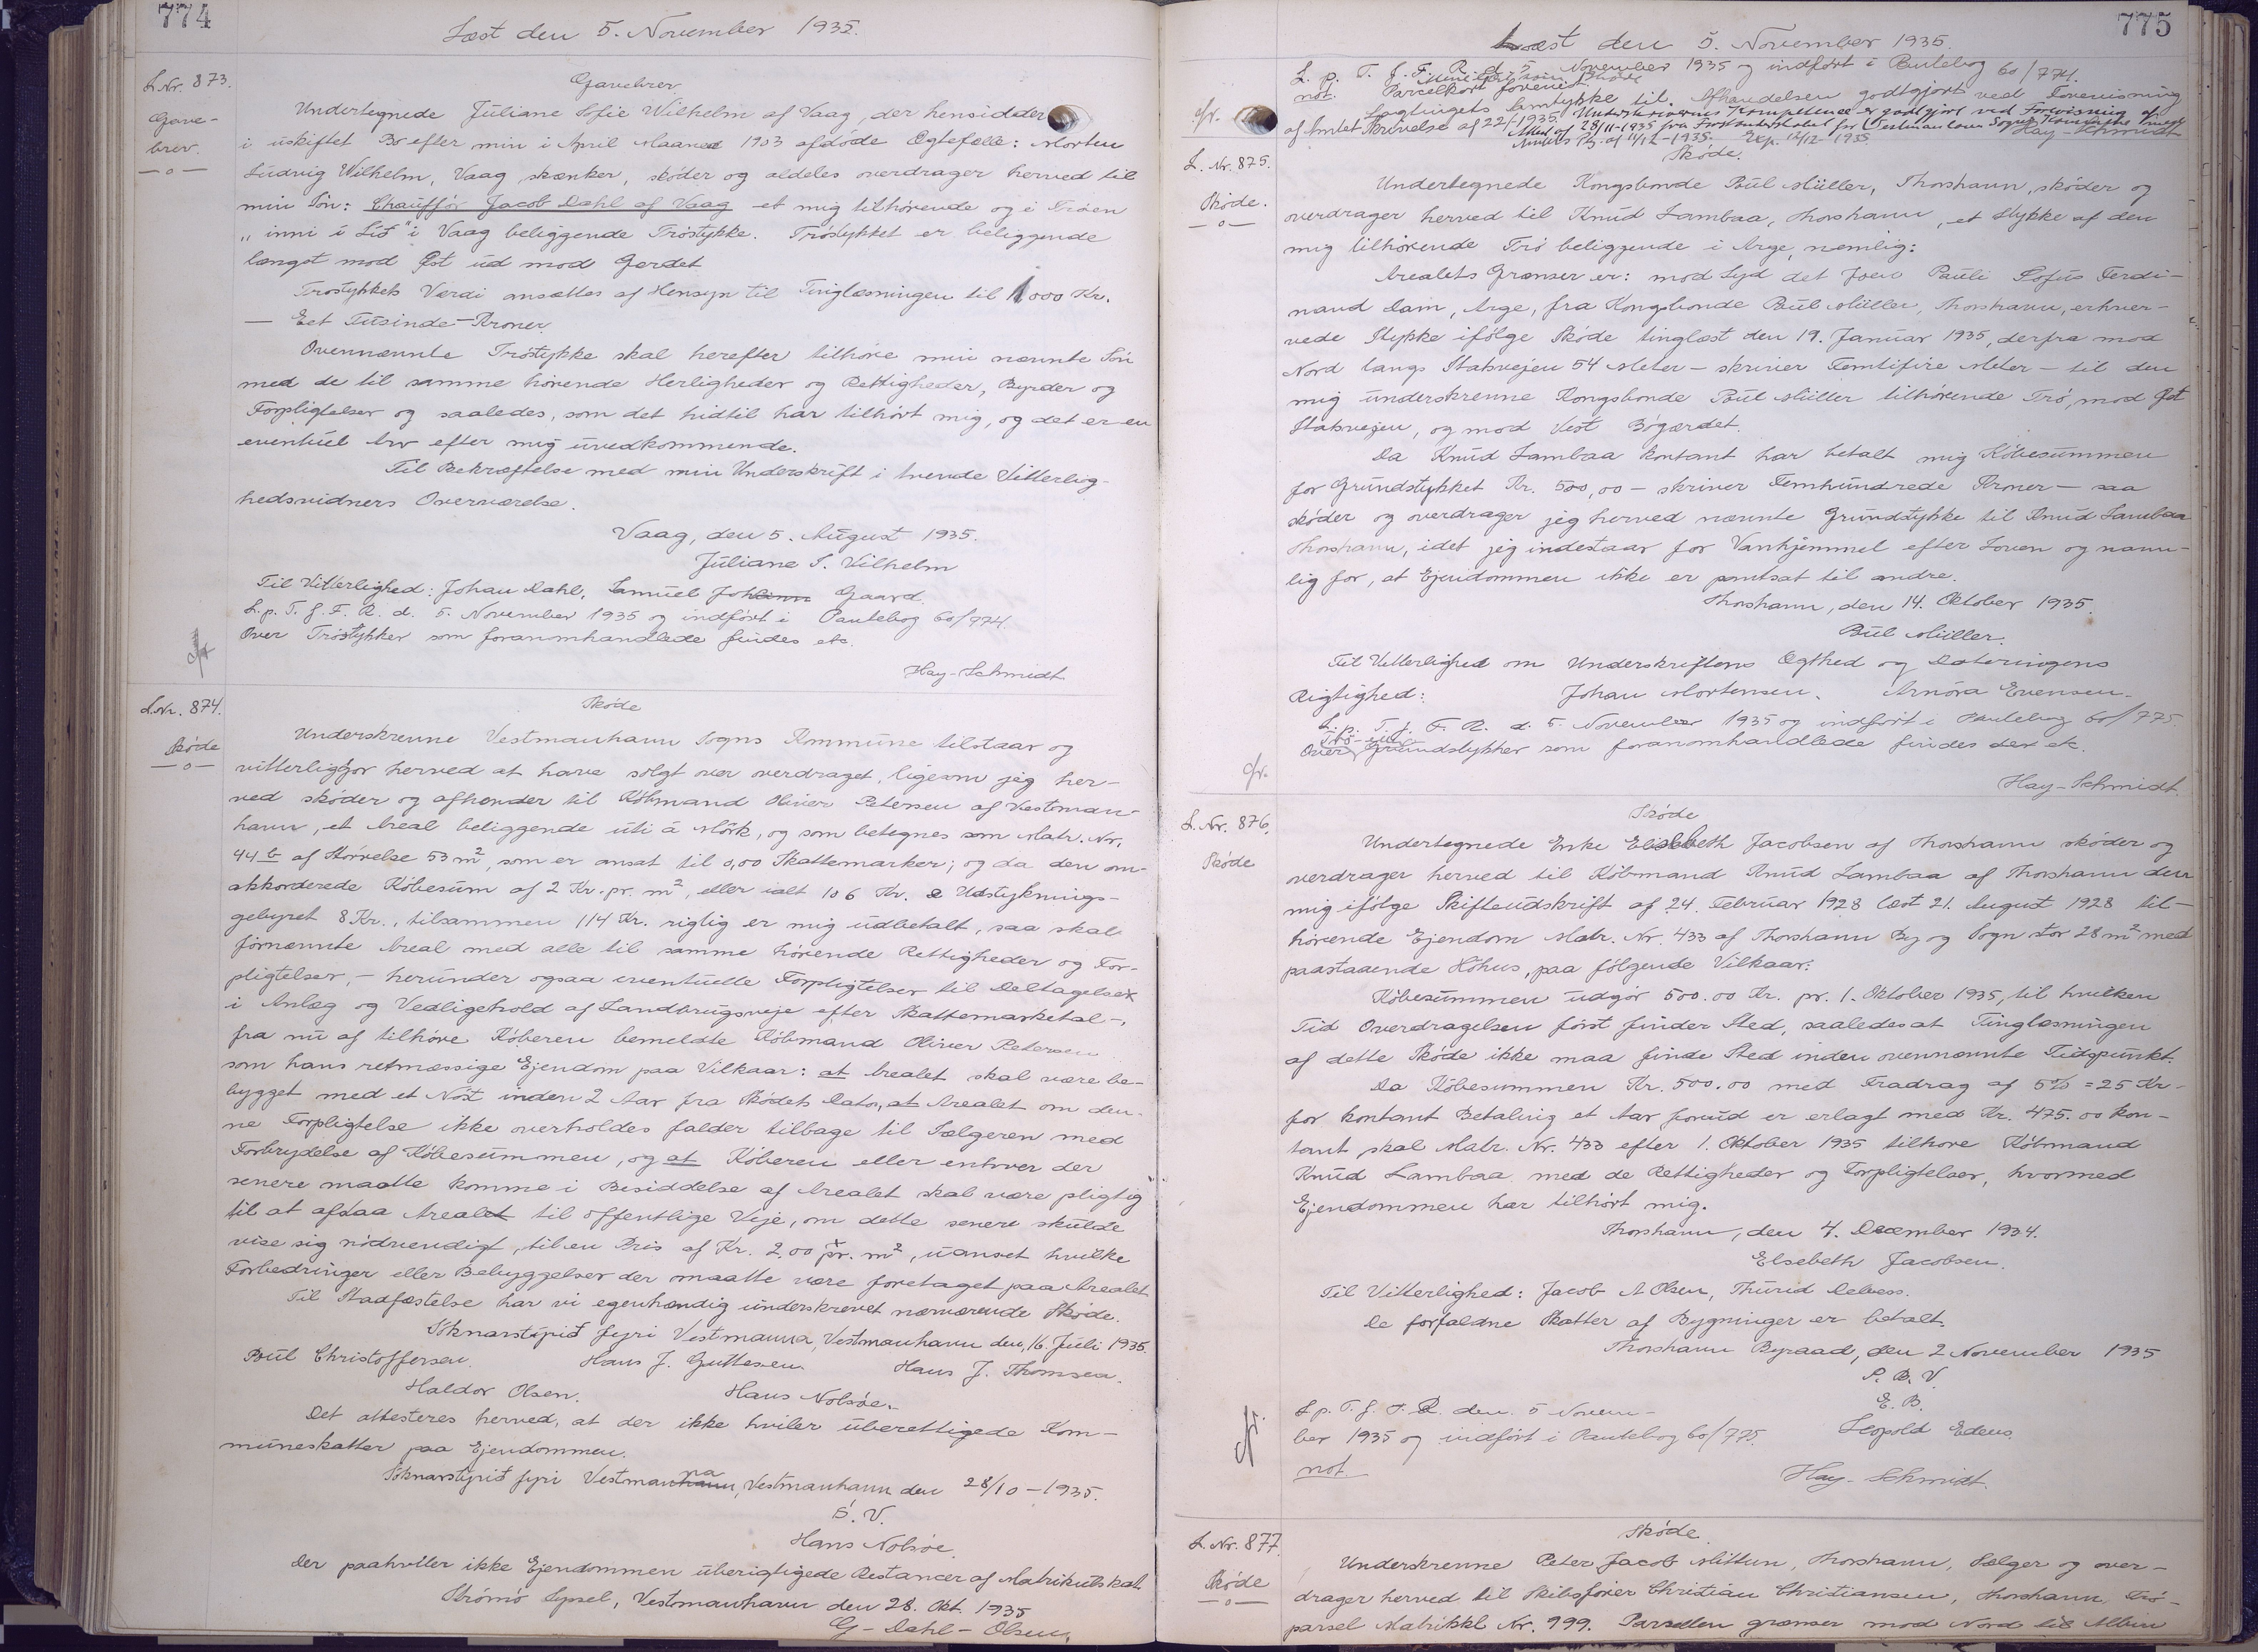 774
Læst den 5. November 1935.
L.Nr. 873.
Gave-
brev.
Gavebrev.
Undertegnede Juliane Sofie Wilhelm af Vaag, der hensidder
i uskiftet Bo efter min i April Maaned 1903 afdöde Ægtefælle: Morten
Ludvig Wilhelm, Vaag skænker, sköder og aldeles overdrager herved til
min Sön: Chaufför Jacob Dahl af Vaag et mig tilhörende og i Tröen
"inni i Lid" i Vaag beliggende Tröstykke. Tröstykket er beliggende
længst mod Øst ud mod Gærdet
Tröstykkets Værdi ansættes af Hensyn til Tinglæsningen til 1000 Kr.
— Eet Tusinde Kroner.
Ovennævnte Tröstykke skal herefter tilhöre min nævnte Sön
med de til samme hörende Herligheder og Rettigheder, Byrder og
Forpligtelser og saaledes, som det hidtil har tilhört mig, og det er en
eventuel Arv efter mig uvedkommende.
Til Bekræftelse med min Underskrift i tvende Vitterlig-
hedsvidners Overværelse.
Vaag, den 5. August 1935.
Juliane S. Vilhelm
Til Vitterlighed: Johan Dahl, Samuel Gaard.
L. p. T. f. F. R. d. 5. November 1935 og indfört i Pantebog 60/774.
Over Tröstykker som foranomhandlede findes etc.
Hay-Schmidt
L.Nr. 874.
Sköde
Sköde
Underskrevne Vestmanhavn Sogns Kommune tilstaar og
vitterliggör herved at have solgt over overdraget, ligesom jeg her-
ved sköder og afhænder til Köbmand Oliver Petersen af Vestman-
havn, et Areal beliggende úti á Mörk, og som betegnes som Matr. Nr.
44 b af Störrelse 53 m², som er ansat til 0,00 Skattemarker; og da den om-
akkorderede Köbesum af 2 Kr. pr. m², eller ialt 106 Kr. & Udstyknings-
gebyret 8 Kr., tilsammen 114 Kr. rigtig er mig udbetalt, saa skal
förnævnte Areal med alle til samme hörende Rettigheder og For-
pligtelser, – herunder ogsaa eventuelle Forpligtelser til Deltagelse
i Anlæg og Vedligehold af Landbrugsveje efter Skattemarketal –,
fra nu af tilhöre Köberen bemeldte Köbmand Oliver Petersen
som hans retmæssige Ejendom paa Vilkaar: at Arealet skal være be-
bygget med et Nöst inden 2 Aar fra Sködets Dato, at Arealet om den-
ne Forpligtelse ikke overholdes falder tilbage til Sælgeren med
Forbrydelse af Köbesummen, og at Köberen eller enhver der
senere maatte komme i Besiddelse af Arealet skal være pligtig
til at afstaa Arealet til offentlige Veje, om dette senere skulde
vise sig nödvendigt, til en Pris af Kr. 2.00 pr. m², uanset hvilke
Forbedringer eller Bebyggelser der maatte være foretaget paa Arealet
Til Stadfæstelse har vi egenhændig underskrevet nærværende Sköde.
Sóknarstýrið fyri Vestmanna, Vestmanhavn den, 16. Juli 1935.
Poul Christoffersen. Hans J. Guttesen. Hans J. Thomsen.
Haldor Olsen. Hans Nolsöe.
Det attesteres herved, at der ikke hviler uberettigede Kom-
muneskatter paa Ejendommen.
Sóknarstýrið fyri Vestmanna, Vestmanhavn den 28/10 – 1935.
S. V.
Hans Nolsöe.
Der paahviler ikke Ejendommen uberigtigede Restancer af Matrikulskat.
Strömö Syssel, Vestmanhavn den 28. Okt. 1935
G – Dahl – Olsen,
775
Læst den 5. November 1935.
L. p. T. f. F. R. d. 5 November 1935 og indfört i Pantebog 60/774.
not. Parcelkort forevist.
Lagtingets Samtykke til Afhændelsen godtgjort ved Forevisning
af Amtets Skrivelse af 22/ -1935. Underskrivernes Kompetence er godtgjort ved Forevisning af
Hay-Schmidt
cfr.
L. Nr. 875.
Sköde.
Sköde.
Undertegnede Kongsbonde Poul Müller, Thorshavn, sköder og
overdrager herved til Knud Lambaa, Thorshavn, et Stykke af den
mig tilhörende Trö beliggende i Arge, nemlig:
Arealets Grænser er: mod Syd det Joen Pauli Sofus Ferdi-
nand Dam, Arge, fra Kongsbonde Poul Müller, Thorshavn, erhver-
vede Stykke ifölge Sköde tinglæst den 19. Januar 1935, derfra mod
Nord langs Statsvejen 54 Meter – skriver Femtifire Meter – til den
mig underskrevne Kongsbonde Poul Müller tilhörende Trö, mod Øst
Statsvejen, og mod Vest Bögærdet.
Da Knud Lambaa kontant har betalt mig Köbesummen
for Grundstykket Kr. 500,00 – skriver Femhundrede Kroner – saa
sköder og overdrager jeg herved nævnte Grundstykke til Knud Lambaa
Thorshavn, idet jeg indestaar for Vanhjemmel efter Loven og navn-
lig for, at Ejendommen ikke er pantsat til andre.
Thorshavn, den 14. Oktober 1935.
Poul Müller.
Til Vitterlighed om Underskriftens Ægthed og Dateringens
Rigtighed: Johan Mortensen. Arnóra Evensen.
L. p. T. f. F. R. d. 5. November 1935 og indfört i Pantebog 60/775
Over Grundstykker som foranomhandlede findes der etc.
cfr.
Hay-Schmidt.
L. Nr. 876.
Sköde
Sköde
Undertegnede Enke Elsebeth Jacobsen af Thorshavn sköder og
overdrager herved til Köbmand Knud Lambaa af Thorshavn den
mig ifölge Skifteudskrift af 24. Februar 1928 læst 21. August 1928 til-
hörende Ejendom Matr. Nr. 433 af Thorshavn By og Sogn stor 28 m² med
paastaaende Höhus, paa fölgende Vilkaar:
Köbesummen udgör 500.00 Kr. pr. 1. Oktober 1935, til hvilken
Tid Overdragelsen först finder Sted, saaledes at Tinglæsningen
af dette Sköde ikke maa finde Sted inden ovennævnte Tidspunkt.
Da Köbesummen Kr. 500.00 med Fradrag af 5% = 25 Kr.
for kontant Betaling et Aar forud er erlagt med Kr. 475.00 kon-
tant skal Matr. Nr. 433 efter 1. Oktober 1935 tilhöre Köbmand
Knud Lambaa med de Rettigheder og Forpligtelser, hvormed
Ejendommen har tilhört mig.
Thorshavn, den 4. December 1934.
Elsebeth Jacobsen.
Til Vitterlighed: Jacob A Olsen, Thurid Debess.
De forfaldne Skatter af Bygninger er betalt.
Thorshavn Byraad, den 2 November 1935
P. B. V.
E. B.
Leopold Edens.
L. p. T. f. F. R. den. 5 Novem-
ber 1935 og indfört i Pantebog 60/775.
not.
cfr.
Hay-Schmidt.
L. Nr. 877.
Sköde
Sköde.
Underskrevne Peter Jacob Mittun, Thorshavn, Sælger og over-
drager herved til Skibsförer Christian Christiansen, Thorshavn, Trö-
parsel Matrikkl Nr. 999. Parsellen grænser mod Nord til Albin